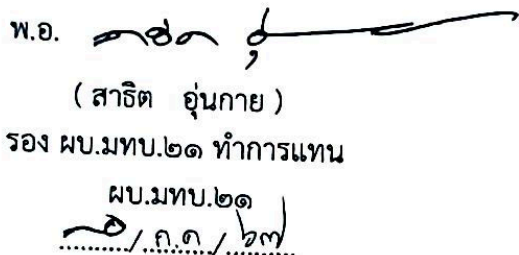 พ.อ.
( สาธิต อุ่นกาย )
รอง ผบ.มทบ.๒๑ ทำการแทน
ผบ.มทบ.๒๑
/ ก.ค / ๖๗